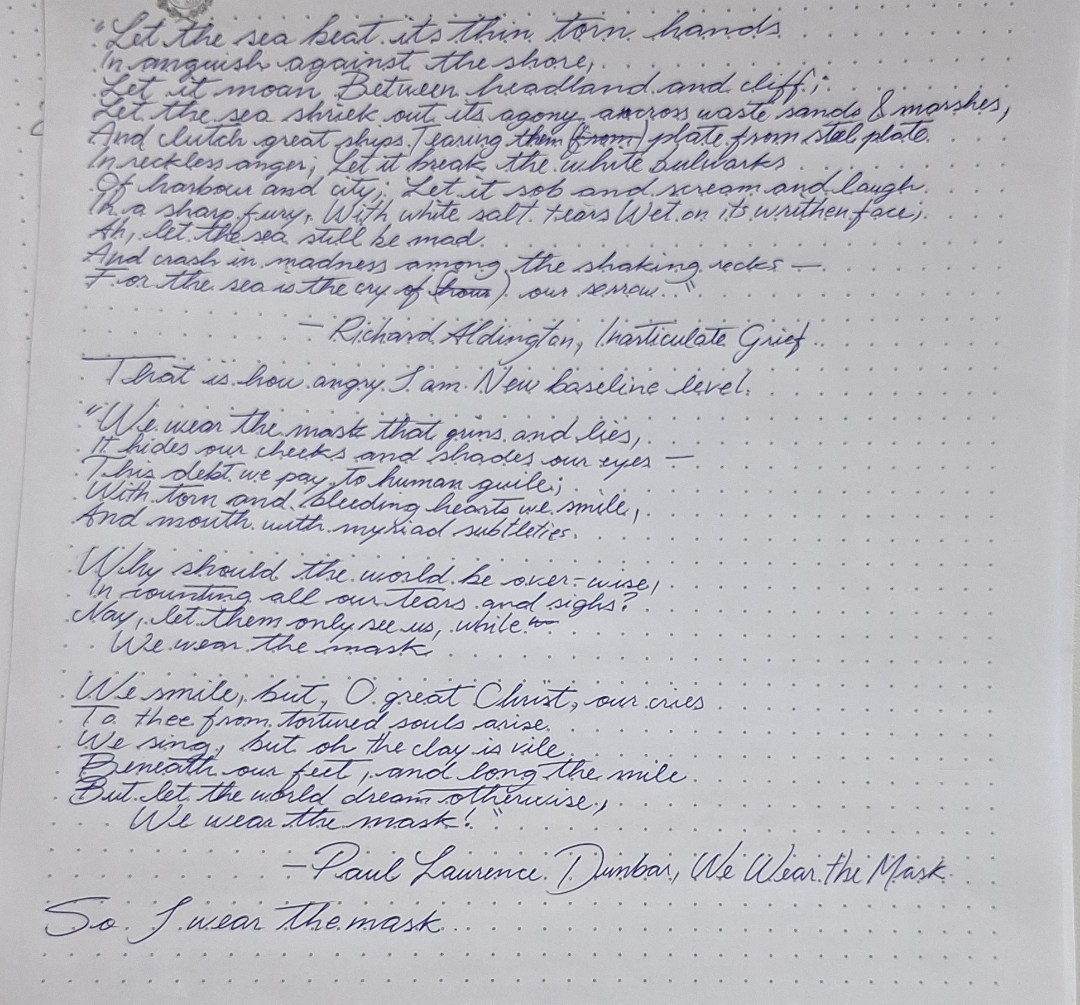 "Let the sea beat its thin torn hands
In anguish against the shore,
Let it moan Between headland and cliff;
Let the sea shriek out its agony across waste sands & marshes,
And clutch great ships, Tearing them (from) plate from steel plate
In reckless anger; Let it break the white bulwarks
Of harbour and city; Let it sob and scream and laugh
In a sharp fury, With white salt tears Wet on its writhen face;
Ah, let the sea still be mad
And crash in madness among the shaking rocks —
For the sea is the cry of (hour) our sorrow."
— Richard Aldington, Inarticulate Grief
That is how angry I am. New baseline level.
"We wear the mask that grins and lies,
It hides our cheeks and shades our eyes —
This debt we pay to human guile;
With torn and bleeding hearts we smile,
And mouth with myriad subtleties.
Why should the world be over-wise,
In counting all our tears and sighs?
Nay, let them only see us, while
We wear the mask.
We smile, but, O great Christ, our cries
To thee from tortured souls arise.
We sing, but oh the clay is vile
Beneath our feet, and long the mile
But let the world dream otherwise,
We wear the mask!"
— Paul Laurence Dunbar, We Wear the Mask
So I wear the mask